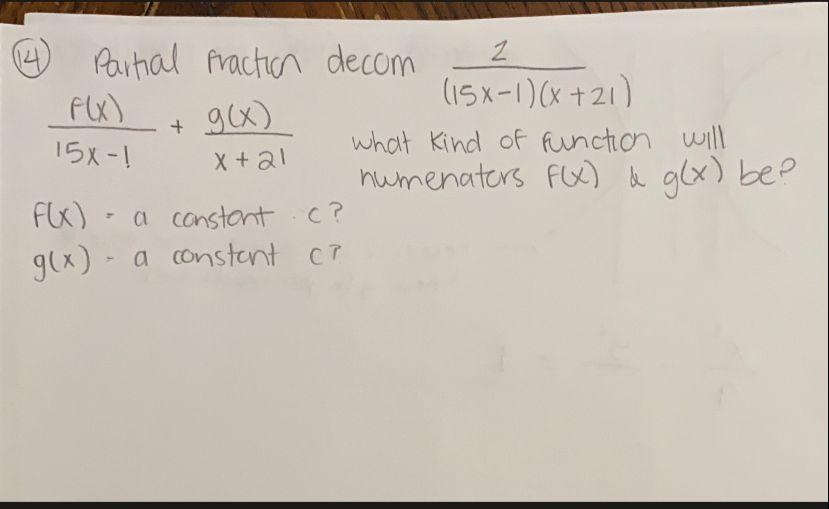 14 Partial fraction decom 2
(15x-1)(x+21)
f(x) + g(x)
15x-1 x+21
what kind of function will
numenators f(x) & g(x) be?
f(x) - a constant c?
g(x) - a constant c?